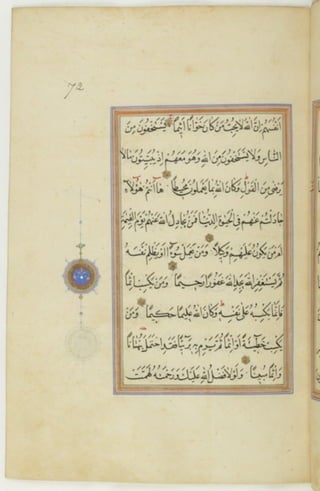 72
أَنْفُسَهُمْ إِنَّ اللَّهَ لَا يُحِبُّ مَنْ كَانَ خَوَّانًا أَثِيمًا يَسْتَخْفُونَ مِنَ
النَّاسِ وَلَا يَسْتَخْفُونَ مِنَ اللَّهِ وَهُوَ مَعَهُمْ إِذْ يُبَيِّتُونَ مَا لَا
يَرْضَى مِنَ الْقَوْلِ وَكَانَ اللَّهُ بِمَا يَعْمَلُونَ مُحِيطًا هَا أَنْتُمْ هَؤُلَاءِ
جَادَلْتُمْ عَنْهُمْ فِي الْحَيَوةِ الدُّنْيَا فَمَنْ يُجَادِلُ اللَّهَ عَنْهُمْ يَوْمَ الْقِيَمَةِ
أَمْ مَنْ يَكُونُ عَلَيْهِمْ وَكِيلًا وَمَنْ يَعْمَلْ سُوءًا أَوْ يَظْلِمْ نَفْسَهُ
ثُمَّ يَسْتَغْفِرِ اللَّهَ يَجِدِ اللَّهَ غَفُورًا رَحِيمًا وَمَنْ يَكْسِبْ إِثْمًا
فَإِنَّمَا يَكْسِبُهُ عَلَى نَفْسِهِ وَكَانَ اللَّهُ عَلِيمًا حَكِيمًا وَمَنْ
يَكْسِبْ خَطِيئَةً أَوْ إِثْمًا ثُمَّ يَرْمِ بِهِ بَرِيئًا فَقَدِ احْتَمَلَ بُهْتَانًا
وَإِثْمًا مُبِينًا وَلَوْلَا فَضْلُ اللَّهِ عَلَيْكَ وَرَحْمَتُهُ لَهَمَّتْ